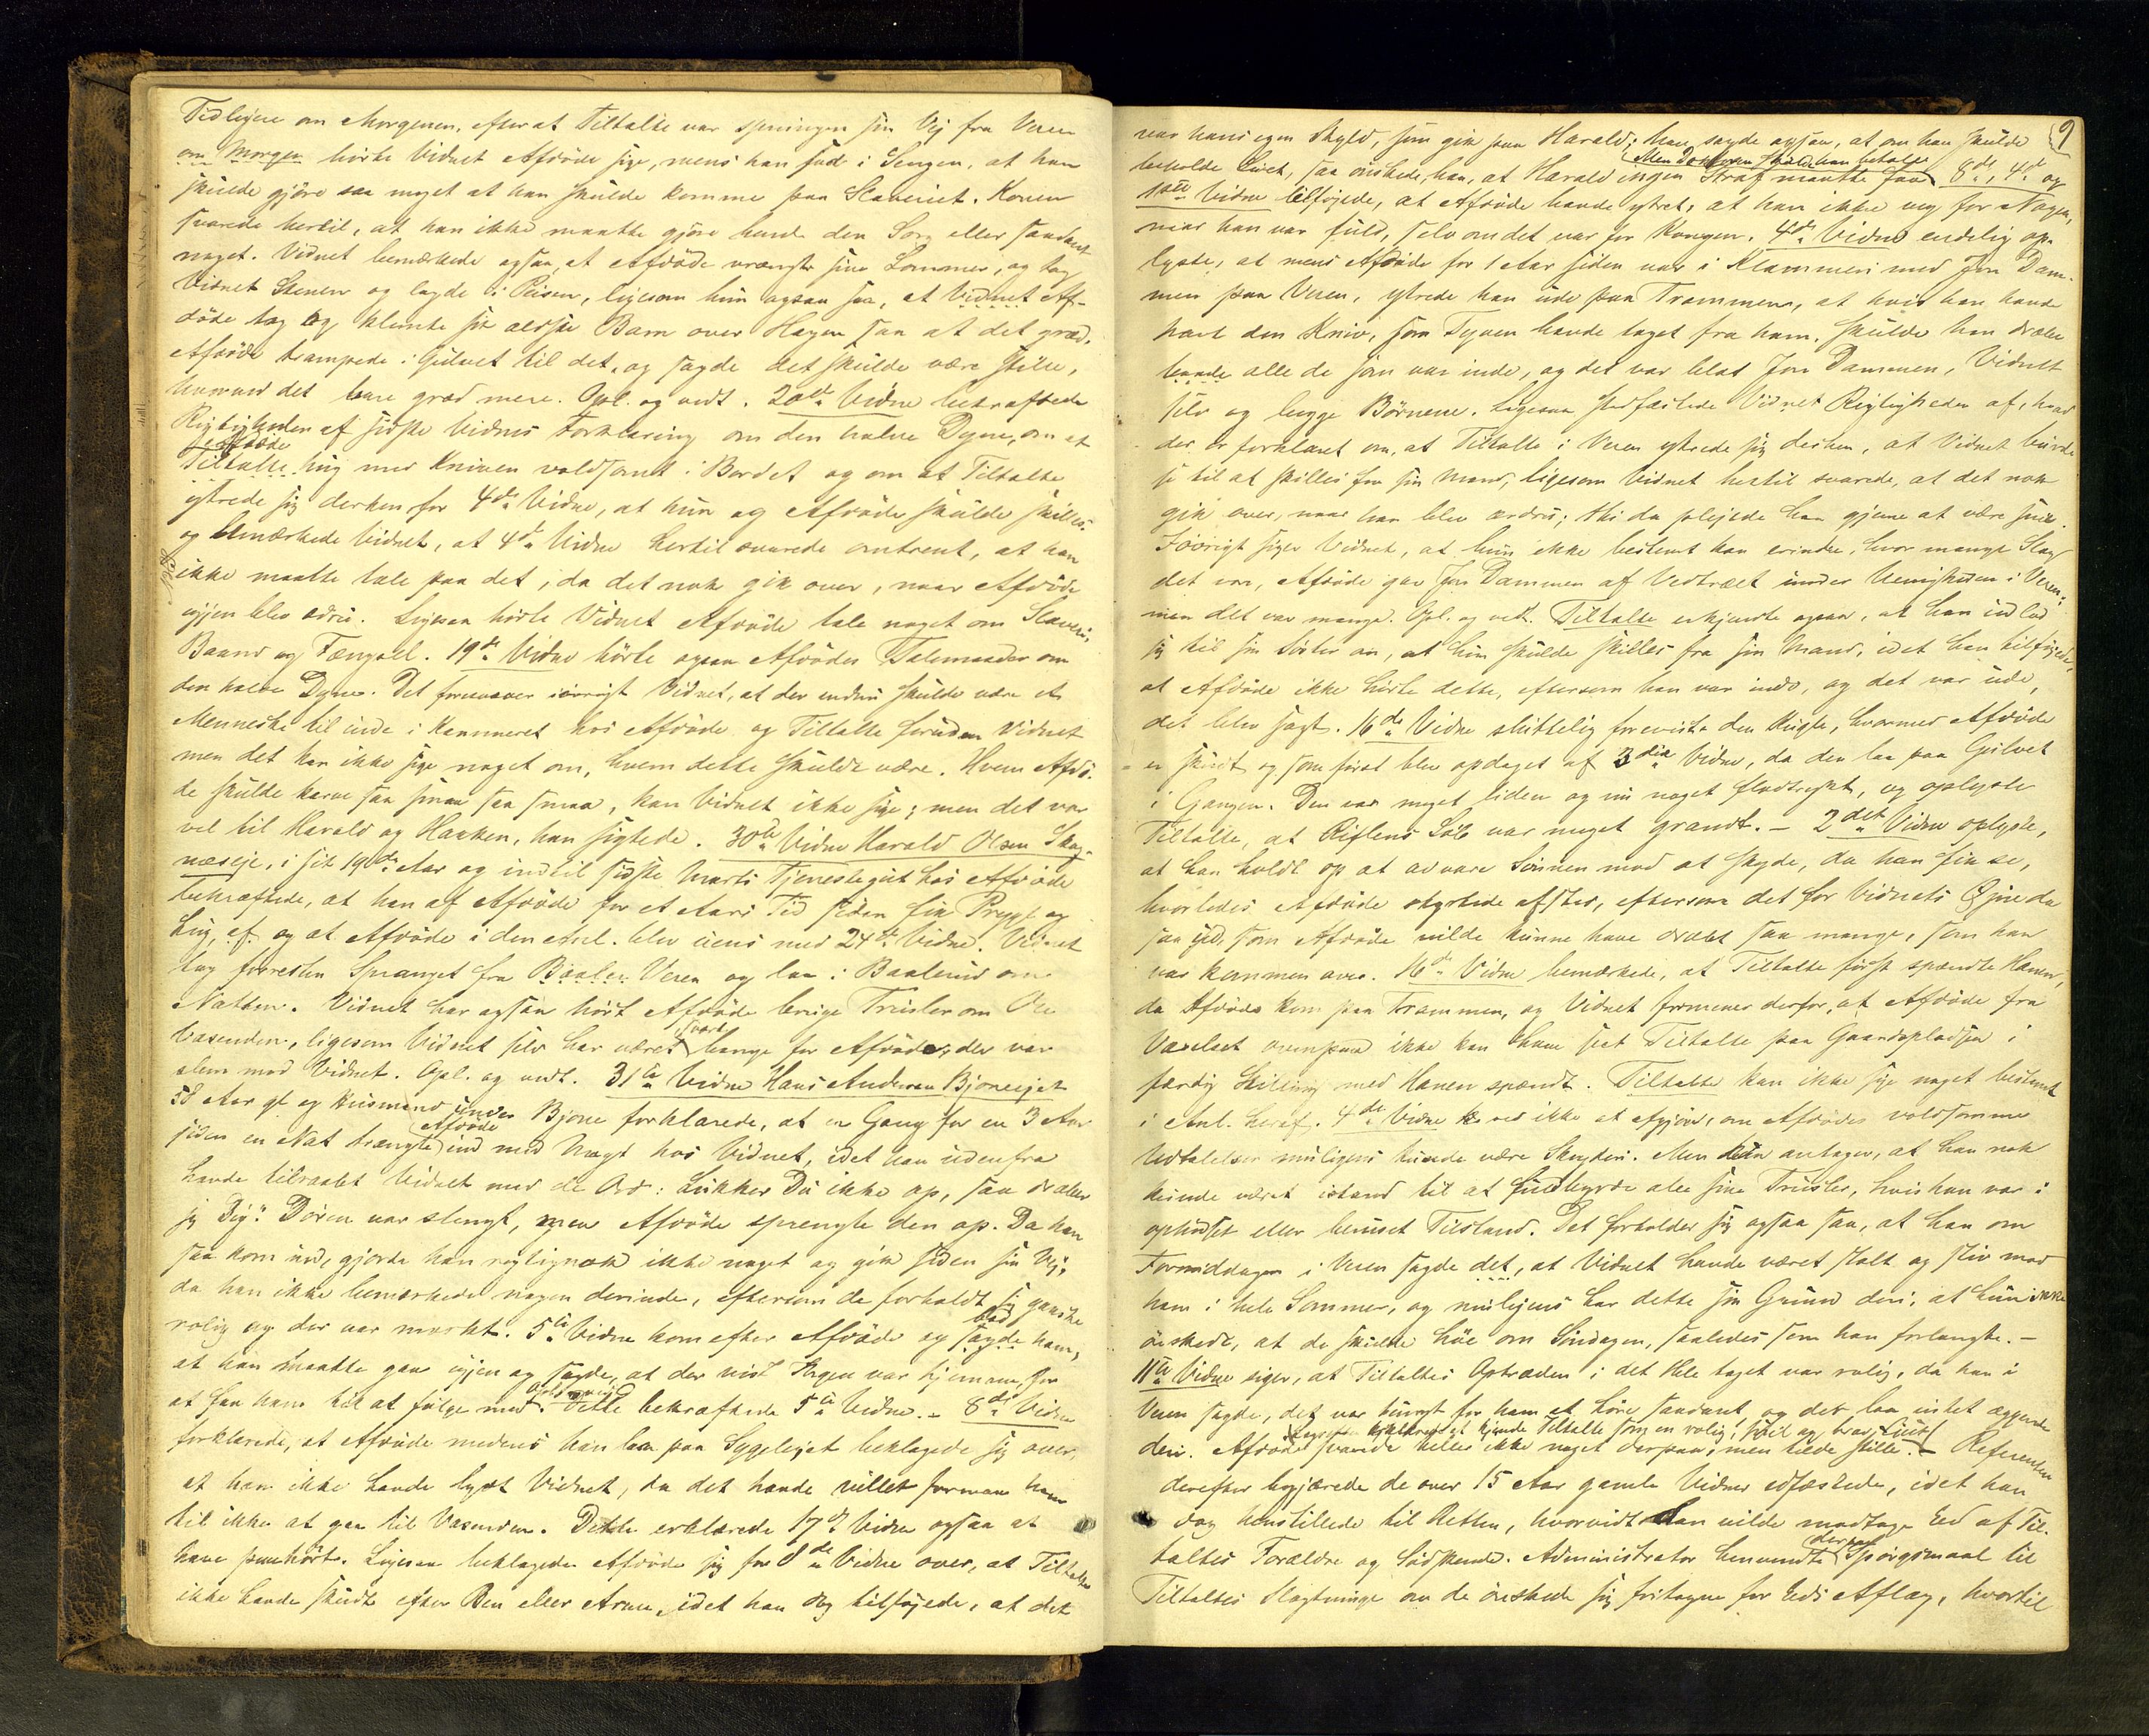 Tidligere om Morgenen, efterat Tiltalte var sprungen sin Vej fra Veren
om Morgen hörte Vidnet Afdöde sige, mens han sad i Sengen, at han
skulde gjöre saa meget at han skulde komme paa Slaveriet. Konen
svarede hertil, at han ikke maatte gjöre hende den Sorg eller saadant
noget. Vidnet bemærkede ogsaa, at Afdöde vrængte sine Lommer, og tog
Vidnet Stenene og lagde i Peisen, ligesom hun ogsaa saa, at Vidnet Af-
döde tog og klemte sit ældste Barn over Hagen saa at det græd.
Afdöde trampede i Gulvet til det, og sagde det skulde være stille,
hvorved det bare græd mere. Opl. og vedt. 20de Vidne bekræftede
Rigtigheden af sidste Vidnes Forklaring om den halve Dyne, om at
Afdöde
Tiltalte hug med Kniven voldsomt i Bordet og om at Tiltalte
ytrede sig derhen for 4de Vidne, at hun og Afdöde skulde skilles
og bemærkede Vidnet, at 4de Vidne hertil svarede omtrent, at han
ikke maatte tale paa det, da det nok gik over, naar Afdöde
igjen blev ædru. Ligesaa hörte Vidnet Afdöde tale noget om Slaveri,
Baand og Fængsel. 19de Vidne hörte ogsaa Afdödes Talemaader om
den halve Dyne. Det forekommer iövrigt Vidnet, at der endnu skulde være et
Menneske til inde i Kammeret hos Afdöde og Tiltalte foruden Vidnet
men det kan ikke sige noget om, hvem dette skulde være. Hvem Afdö-
de skulde karve saa smaa saa smaa, kan Vidnet ikke sige; men det var
vel til Harald og Haaken, han sigtede. 30te Vidne Harald Olsen Skag-
næseje, i sit 19de Aar og indtil sidste Marts Tjenestegut hos Afdöde
bekræftede, at han af Afdöde for et Aars Tid siden fik Prygl og
Lug, cf. og at Afdöde i den Anl. blev uens med 24de Vidne. Vidnet
tog forresten Spranget fra Baalerud Veren og laa i Baalerud om
Natten. Vidnet har ogsaa hört Afdöde bruge Trusler om Ole
svært
Vasenden, ligesom Vidnet selv har været bange for Afdöde, der var
slem mod Vidnet. Opl. og vedt. 31te Vidne Hans Andersen Bjoneejet
58 Aar gl. og Husmand under Bjone forklarede, at en Gang for en 3 Aar
Afdöde
siden en Nat trængte ind med Magt hos Vidnet, idet han udenfra
havde tilraabt Vidnet med de Ord: Lukker Du ikke op, saa dræber
jeg Dig". Dören var stengt, men Afdöde sprengte den op. Da han
saa kom ind, gjorde han rigtignok ikke noget og gik siden sin Vej,
da han ikke bemærkede nogen derinde, eftersom de forholdt sig ganske
bad
rolig og der var mørkt. 5te Vidne kom efter Afdöde og sagde ham,
at han maatte gaa igjen og sagde, at der vist Ingen var hjemme, for
at faa ham til at fölge med. Dette bekræftede 5te Vidne. – 8de Vidne
forklarede, at Afdöde medens han laa paa Sygelejet beklagede sig over,
at han ikke havde lydt Vidnet, da det havde villet formaa ham
til ikke at gaa til Vasenden. Dette erklærede 17de Vidne ogsaa at
have paahört. Ligesaa beklagede Afdöde sig for 8de Vidne over, at Tiltalte
ikke havde skudt efter Ben eller Arme, idet han dog tilföjede, at det
9
var hans egen Skyld, som gik paa Harald; han sagde ogsaa, at om han skulde
Men Doktoren skulde han betale
beholde Livet, saa önskede han, at Harald ingen Straf maatte faa. 8de, 4de og
1ste Vidne tilföjede, at Afdöde havde ytret, at han ikke veg for Nogen,
naar han var fuld, selv om det var for Kongen. 4de Vidne endelig op-
lyste, at mens Afdöde for 1 Aar siden var i Klammeri med Jon Dam-
men paa Veren, ytrede han ude paa Trammen, at hvis han havde
havt den Kniv, som Tyven havde taget fra ham, skulde han dræbe
havde alle de som var inde, og det var blot Jon Dammen, Vidnet
selv og begge Börnene. Ligesaa stadfæstede Vidnet Rigtigheden af, hvad
der er forklaret om, at Tiltalte i Veren ytrede sig derhen, at Vidnet burde
se til at skilles fra sin Mand, ligesom Vidnet hertil svarede, at det nok
gik over, naar han blev ædru; thi da plejede han gjerne at være snil.
Iövrigt siger Vidnet, at hun ikke bestemt kan erindre, hvor mange Slag
det var, Afdöde gav Jon Dammen af Vedtræet under Uenigheden i Veren;
men det var mange. Opl. og vedt. Tiltalte erkjendte ogsaa, at han indlod
sig til sin Söster om, at hun skulde skilles fra sin Mand, idet han tilföjede,
at Afdöde ikke hörte dette, eftersom han var inde, og det var ude,
det blev sagt. 16de Vidne sluttelig foreviste den Kugle, hvormed Afdöde
er skudt, og som först blev opdaget af 3die Vidne, da den laa paa Gulvet
i Gangen. Den var meget liden og nu noget fladtrykt, og oplyste
Tiltalte, at Riflens Löb var meget grandt. – 2det Vidne oplyste,
at han holdt op at advare Sönnen mod at skyde, da han fik se,
hvorledes Afdöde styrtede afsted, eftersom det for Vidnets Öjne da
saa ud, som Afdöde vilde kunne have dræbt saa mange, som han
var kommen over. 16de Vidne bemærkede, at Tiltalte först spændte Hanen,
da Afdöde kom paa Trammen, og Vidnet formener derfor, at Afdöde fra
Værelset ovenpaa ikke kan have seet Tiltalte paa Gaardspladsen i
færdig Stilling med Hanen spændt. Tiltalte kan ikke sige noget bestemt
i Anl. heraf. 4de Vidne tör ikke at afgjöre, om Afdödes voldsomme
Udtalelser muligens kunde være Skryderi. Men hun antager, at han nok
kunde været istand til at fuldbyrde alle sine Trusler, hvis han var i
ophidset eller beruset Tilstand. Det forholder sig ogsaa saa, at han om
Formiddagen i Veren sagde det, at Vidnet havde været stolt og stiv mod
ham i hele Sommer, og muligens har dette sin Grund deri, at hun ikke
önskede, at de skulde höe om Söndagen, saaledes som han forlangte. –
11te Vidne siger, at Tiltaltes Optræden i det Hele taget var rolig, da han i
Veren sagde, det var tungt for ham at höre saadant, og der laa intet æggende
deri. Afdöde svarede heller ikke noget derpaa, men tiede stille. – Referenten
derefter begjærede de over 15 Aar gamle Vidner edfæstede, idet han
dog henstillede til Retten, hvorvidt den vilde modtage Ed af Til-
derpaa
taltes Forældre og Södskende. Administrator henvendte Spörgsmaal til
Tiltaltes Slægtninge om de önskede sig fritagne for Eds Aflæg, hvortil